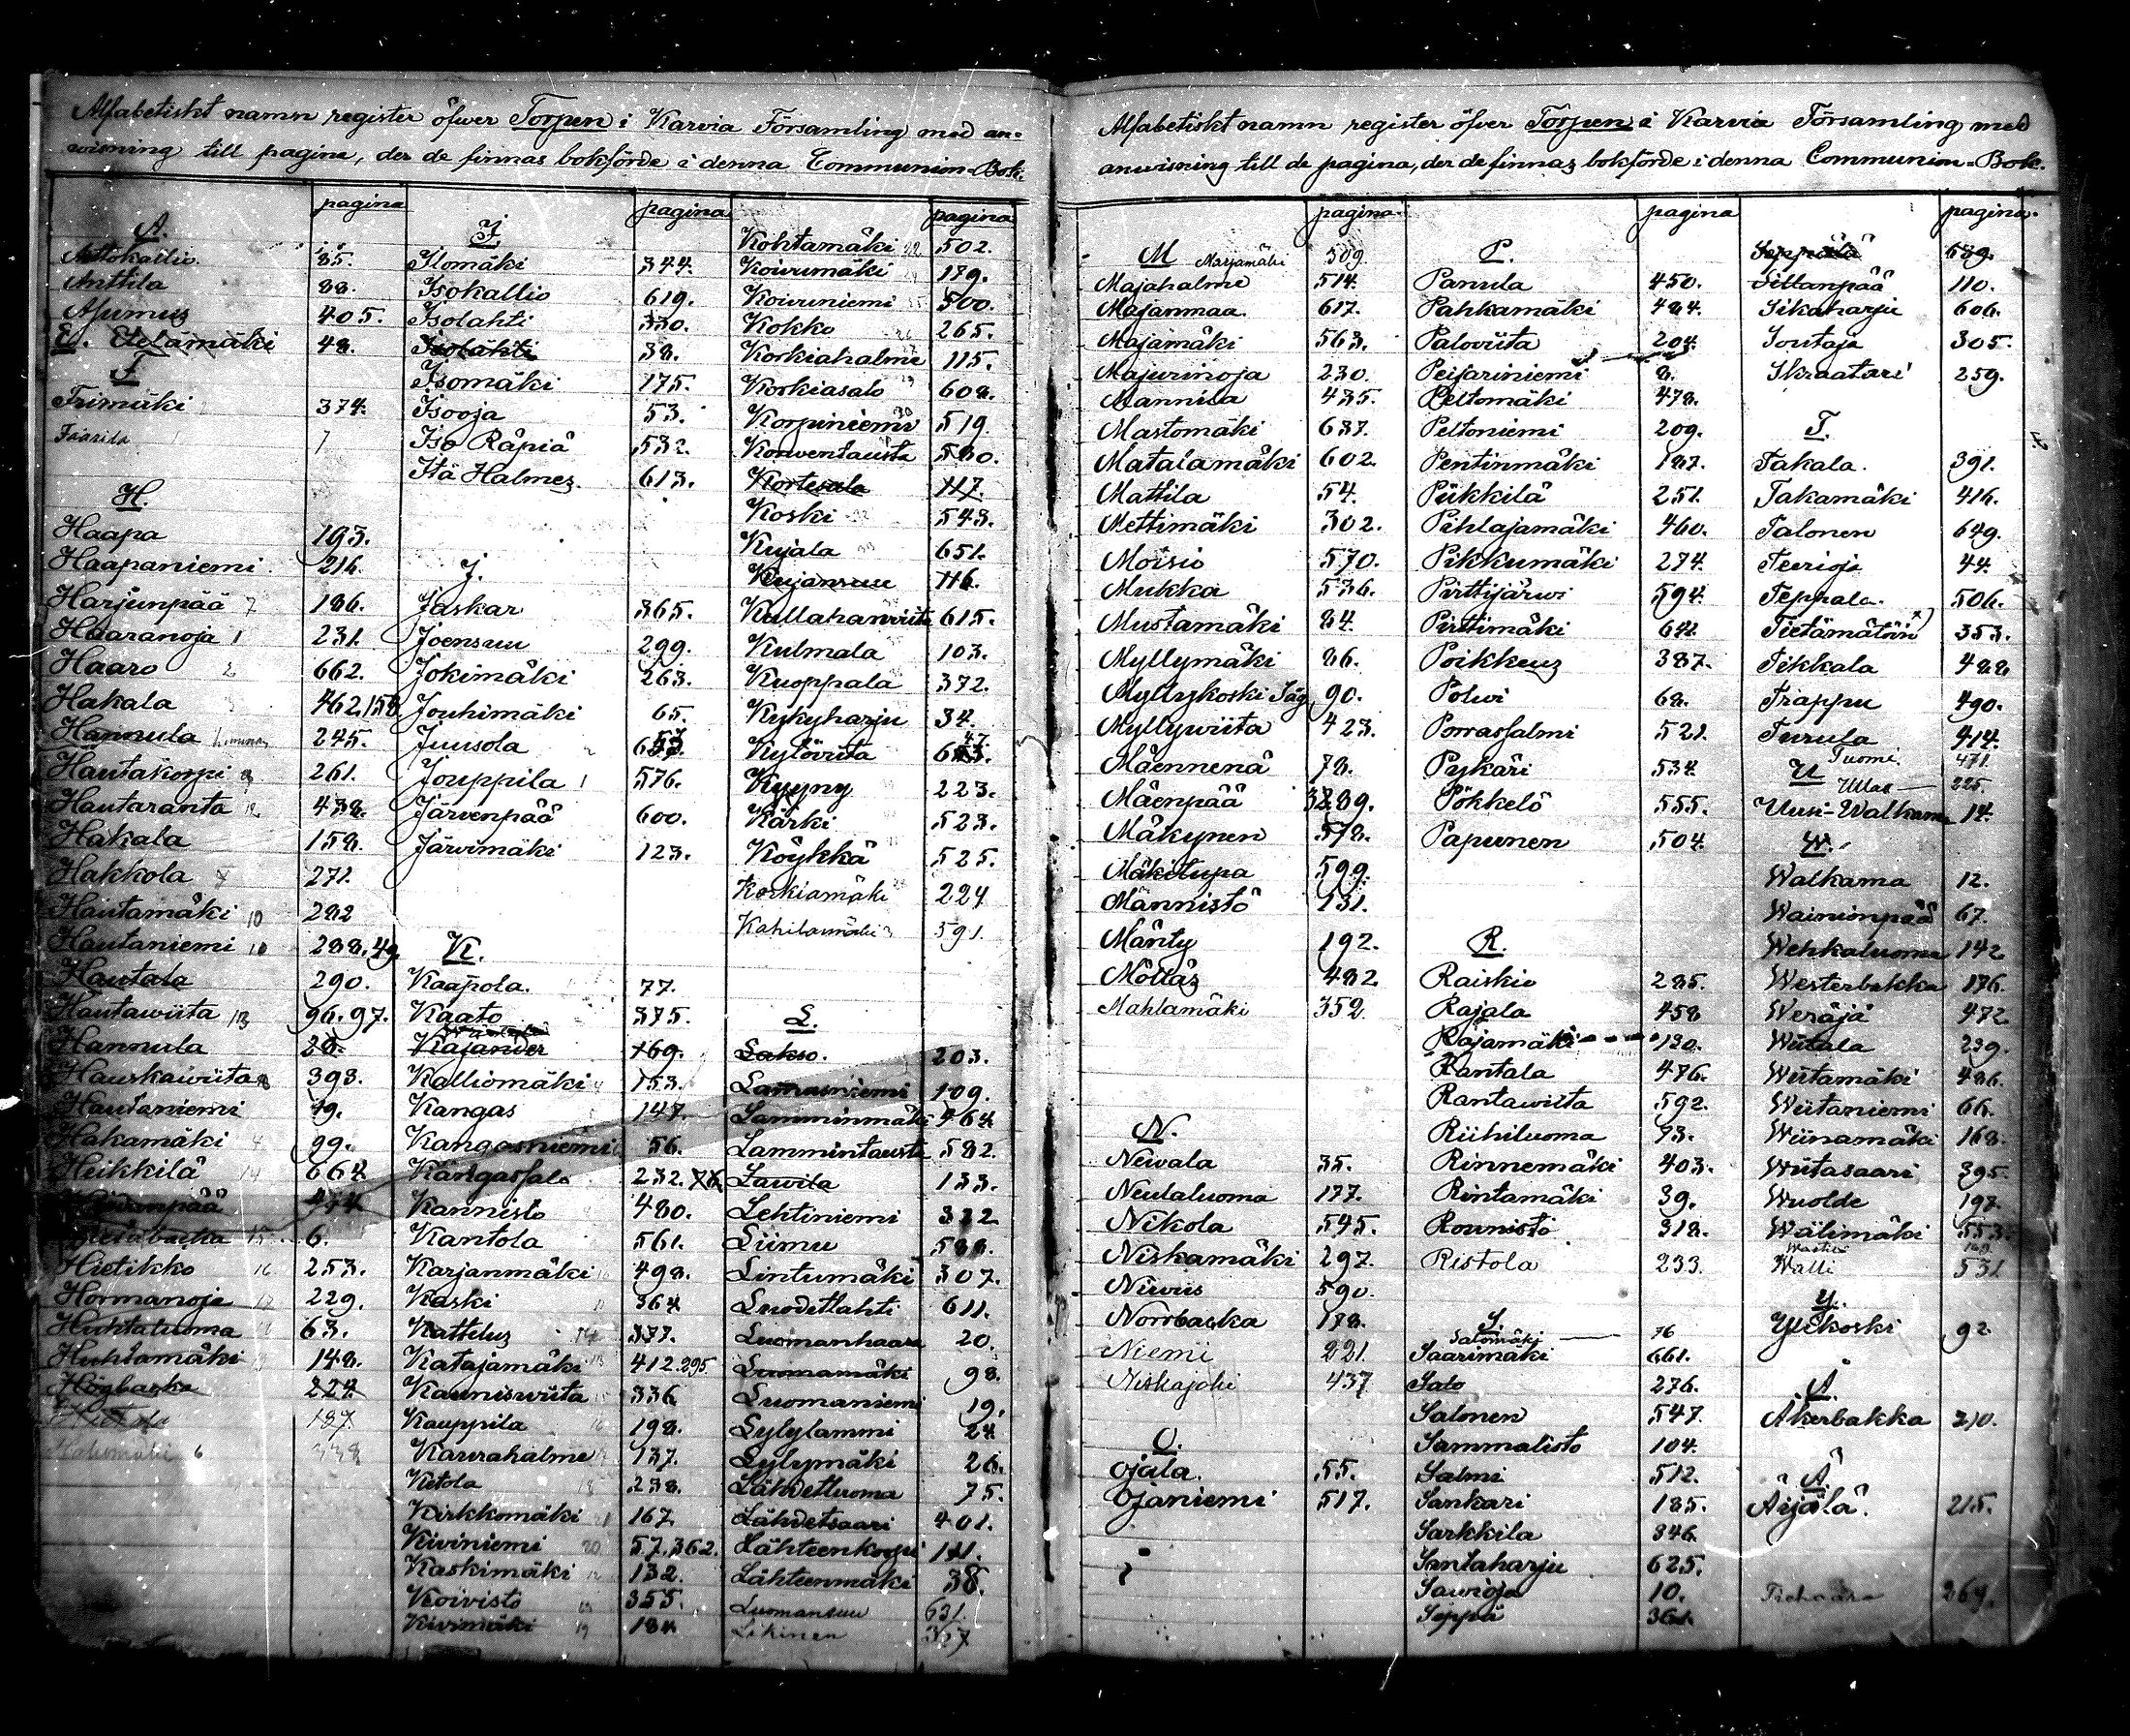 Alfabetiskt namn register öfver Torpen i Karvia Församling med an-
visning till pagina, der de finnas bokförde i denna Communion-Bok.
pagina
A.
Attokallio. 35.
Anttila 88.
Asumus 405.
E. Etelämäki 48.
F
Frimäki 374.
Faarila 7
H.
Haapa 193.
Haapaniemi. 216.
Harjunpää 7 186.
Haaranoja 1 231.
Haaro 2 662.
Hakala 462,158
Hannula 245.
Hautakorpi 261.
Hautaranta 12 438.
Hakala 158.
Hakkola 271.
Hautamäki 10 282
Hautaniemi 10 288,49.
Hautala 290.
Hautawiita 13 96.97.
Hannula 28.
Hauskawiita 8 393.
Hautaniemi 49.
Hakamäki 4 99.
Heikkilä 14 664.
6.
Hietikko 16 253.
Hormanoja 229.
Huhtaluoma 63.
Huhtamäki 148.
Högbacka 224.
187.
6 338
pagina
I.
Ilomäki 344.
Isokallio 619.
Isolahti 330.
Isolahti 38.
Isomäki 175.
Isooja 53.
Iso Räpiä 532.
Itä Halmes. 613.
J.
Jaskar 365.
Joensuu 299.
Jokimäki 263.
Jouhimäki 65.
Juusola
Jouppila 1 576.
Järvenpää 600.
Järvimäki 123.
K.
Kaapola. 77.
Kaato 375.
Kajander 169.
Kalliomäki 4 153.
Kangas 147.
Kangasniemi 56.
Kangassalo 232.
Kannisto 480.
Kantola 561.
Karjanmäki 498.
Kaski 364
Kattilus 377.
Katajamäki 13 412.295
Kauniswiita 336
Kauppila 16 198.
Kaurahalme 137.
Ketola 18 238.
Kirkkomäki 21 167
Kiviniemi 20 57.362.
Kaskimäki 132.
Koivisto 355.
Kivimäki 19 184
pagina
Kohtamäki 22 502.
Koivumäki 189.
Koivuniemi 500.
Kokko 265.
Korkiahalme 115.
Korkiasalo 608.
Korpiniemi 30 519.
Korventausta 580.
Kortesalo 117.
Koski 543.
Kujala 33 651.
Kujansuu 116.
Kullahanwiita 615.
Kulmala 103.
Kuoppala 372.
Kykyharju 34.
Kylöviita
Kyyny 223.
Kärki 523.
Köykkä 525.
Korkiamäki 224
Kahilamäki 3 591.
L.
Lakso. 203.
Lamasniemi 109.
Lamminmäki 464
Lammintausta 582.
Lawila 133.
Lehtiniemi 322
Liimu 586.
Lintumäki 307.
Luodetlahti 611.
Luomanhaara 20.
Luomamäki 98.
Luomaniemi 19.
Lylylammi 24
Lylymäki 26.
Lähdetluoma 75.
Lähdetsaari 401.
Lähteenkorpi 111.
Lähteenmäki 38.
Luomansuu 631.
Likinen 327
Alfabetiskt namn register öfver Torpen i Karvia Församling med
anvisning till de pagina, der de finnas bokförde i denna Communion-Bok.
pagina.
M Marjamäki 509.
Majahalme 514.
Majanmaa. 617.
Majamäki 563.
Majurinoja 230.
Mannila 435.
Mastomäki 637.
Matalamäki 602.
Mattila 54.
Mettimäki 302.
Moisio 570.
Mukka 536.
Mustamäki 84.
Myllymäki 86.
Myllykoski Såg 90.
Myllywiita 423.
Mäennenä 78.
Mäenpää
Mäkynen 578.
Mäkitupa 599.
Männistö 131.
Mänty 192.
Möttäs 482
Mahlamäki 352
N.
Newala 35.
Neulaluoma 177.
Nikola 545.
Niskamäki 297.
Niwus 590.
Norrbacka 178.
Niemi 221.
Niskajoki 437
O.
Ojala. 55.
Ojaniemi 517.
pagina
P.
Panula 450.
Pahkamäki 484.
Paloviita 204.
Peijariniemi 8.
Peltomäki 478.
Peltoniemi 209.
Pentinmäki 187.
Piikkilä 251.
Pihlajamäki 460.
Pikkumäki 274.
Pirttijärwi 594.
Pirttimäki 641.
Poikkeus 387.
Polwi 68.
Porrassalmi 521.
Pykäri 534.
Pökkelö 555.
Papunen 504.
R.
Raiskio 285.
Rajala 458
Rajamäki 130.
Rantala 476.
Rantawiita 592.
Riihiluoma 73.
Rinnemäki 403.
Rintamäki 39.
Rounisto 318.
Ristola 233.
S.
Salomäki 76
Saarimäki 661.
Salo 276.
Salonen 547.
Sammalisto 104.
Salmi 512.
Sankari 185.
Sarkkila 346
Santaharju 625.
Sawioja 10.
Seppä 361.
pagina.
Seppälä 639.
Sillanpää 110.
Sikaharju 606.
Soutaja 305.
Skraatari 259.
T.
Takala. 391.
Takamäki 416.
Talonen 649.
Teerioja 44.
Teppala. 506.
Tietämätöin 353.
Tikkala 488
Trappu 490.
Turula 414.
Tuomi. 471.
U Ullas 225.
Uusi-Walkama 14.
W.
Walkama 12.
Wainionpää 67.
Wehkaluoma 142
Westerbakka 176.
Weräjä 472
Wiitala 239.
Wiitamäki 486.
Wiitaniemi 66.
Wiinamäki 168.
Wiitasaari 395.
Wuolde 197.
Wälimäki 553.
Wälli 531
Y.
Ylikoski 92
Å.
Åkerbakka 210.
Ä
Äijälä. 215.
269.